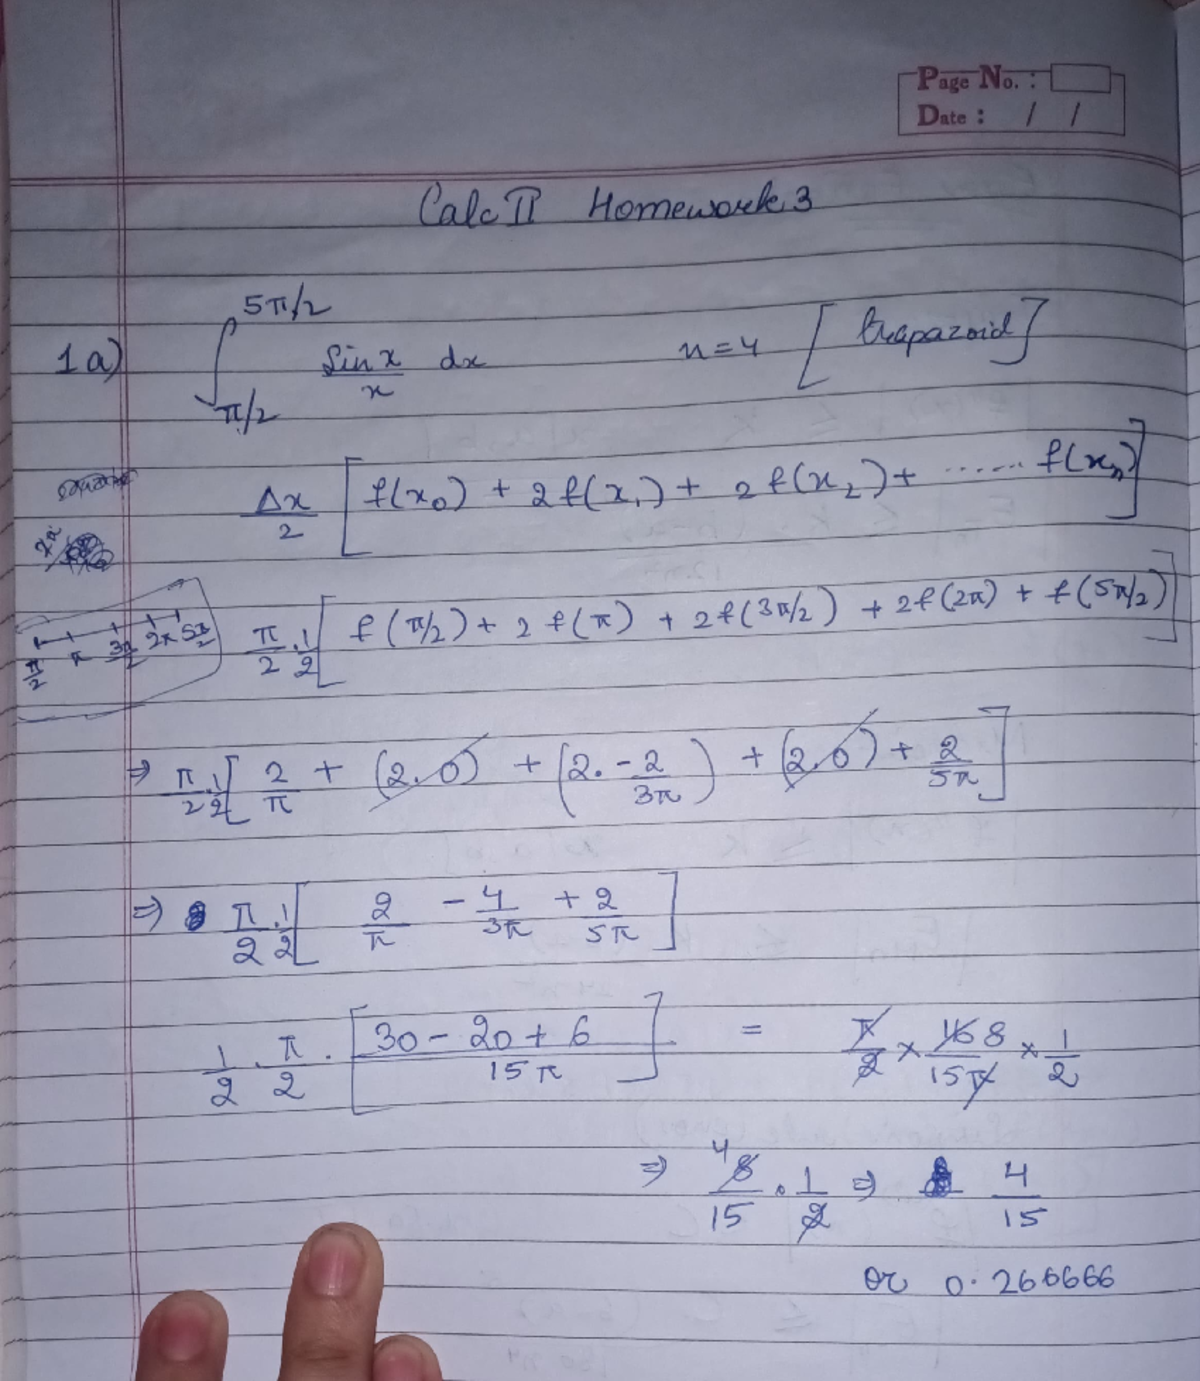 Page No. :
Date : / /
Calc II Homework 3
1a) ∫_{π/2}^{5π/2} sin x / x dx n=4 [trapazoid]
Δx/2 [f(x₀) + 2f(x₁) + 2f(x₂) + ...... f(xₙ)]
π/2 π 3π/2 2π 5π/2
π/2 · 1/2 [f(π/2) + 2f(π) + 2f(3π/2) + 2f(2π) + f(5π/2)]
⇒ π/2 · 1/2 [2/π + (2.0) + (2. -2/3π) + (2.0) + 2/5π]
⇒ π/2 · 1/2 [2/π - 4/3π + 2/5π]
1/2 · π/2 · [(30 - 20 + 6)/15π] = π/2 × 16 8/15π × 1/2
⇒ 4 8/15 · 1/2 ⇒ 4/15
or 0.266666